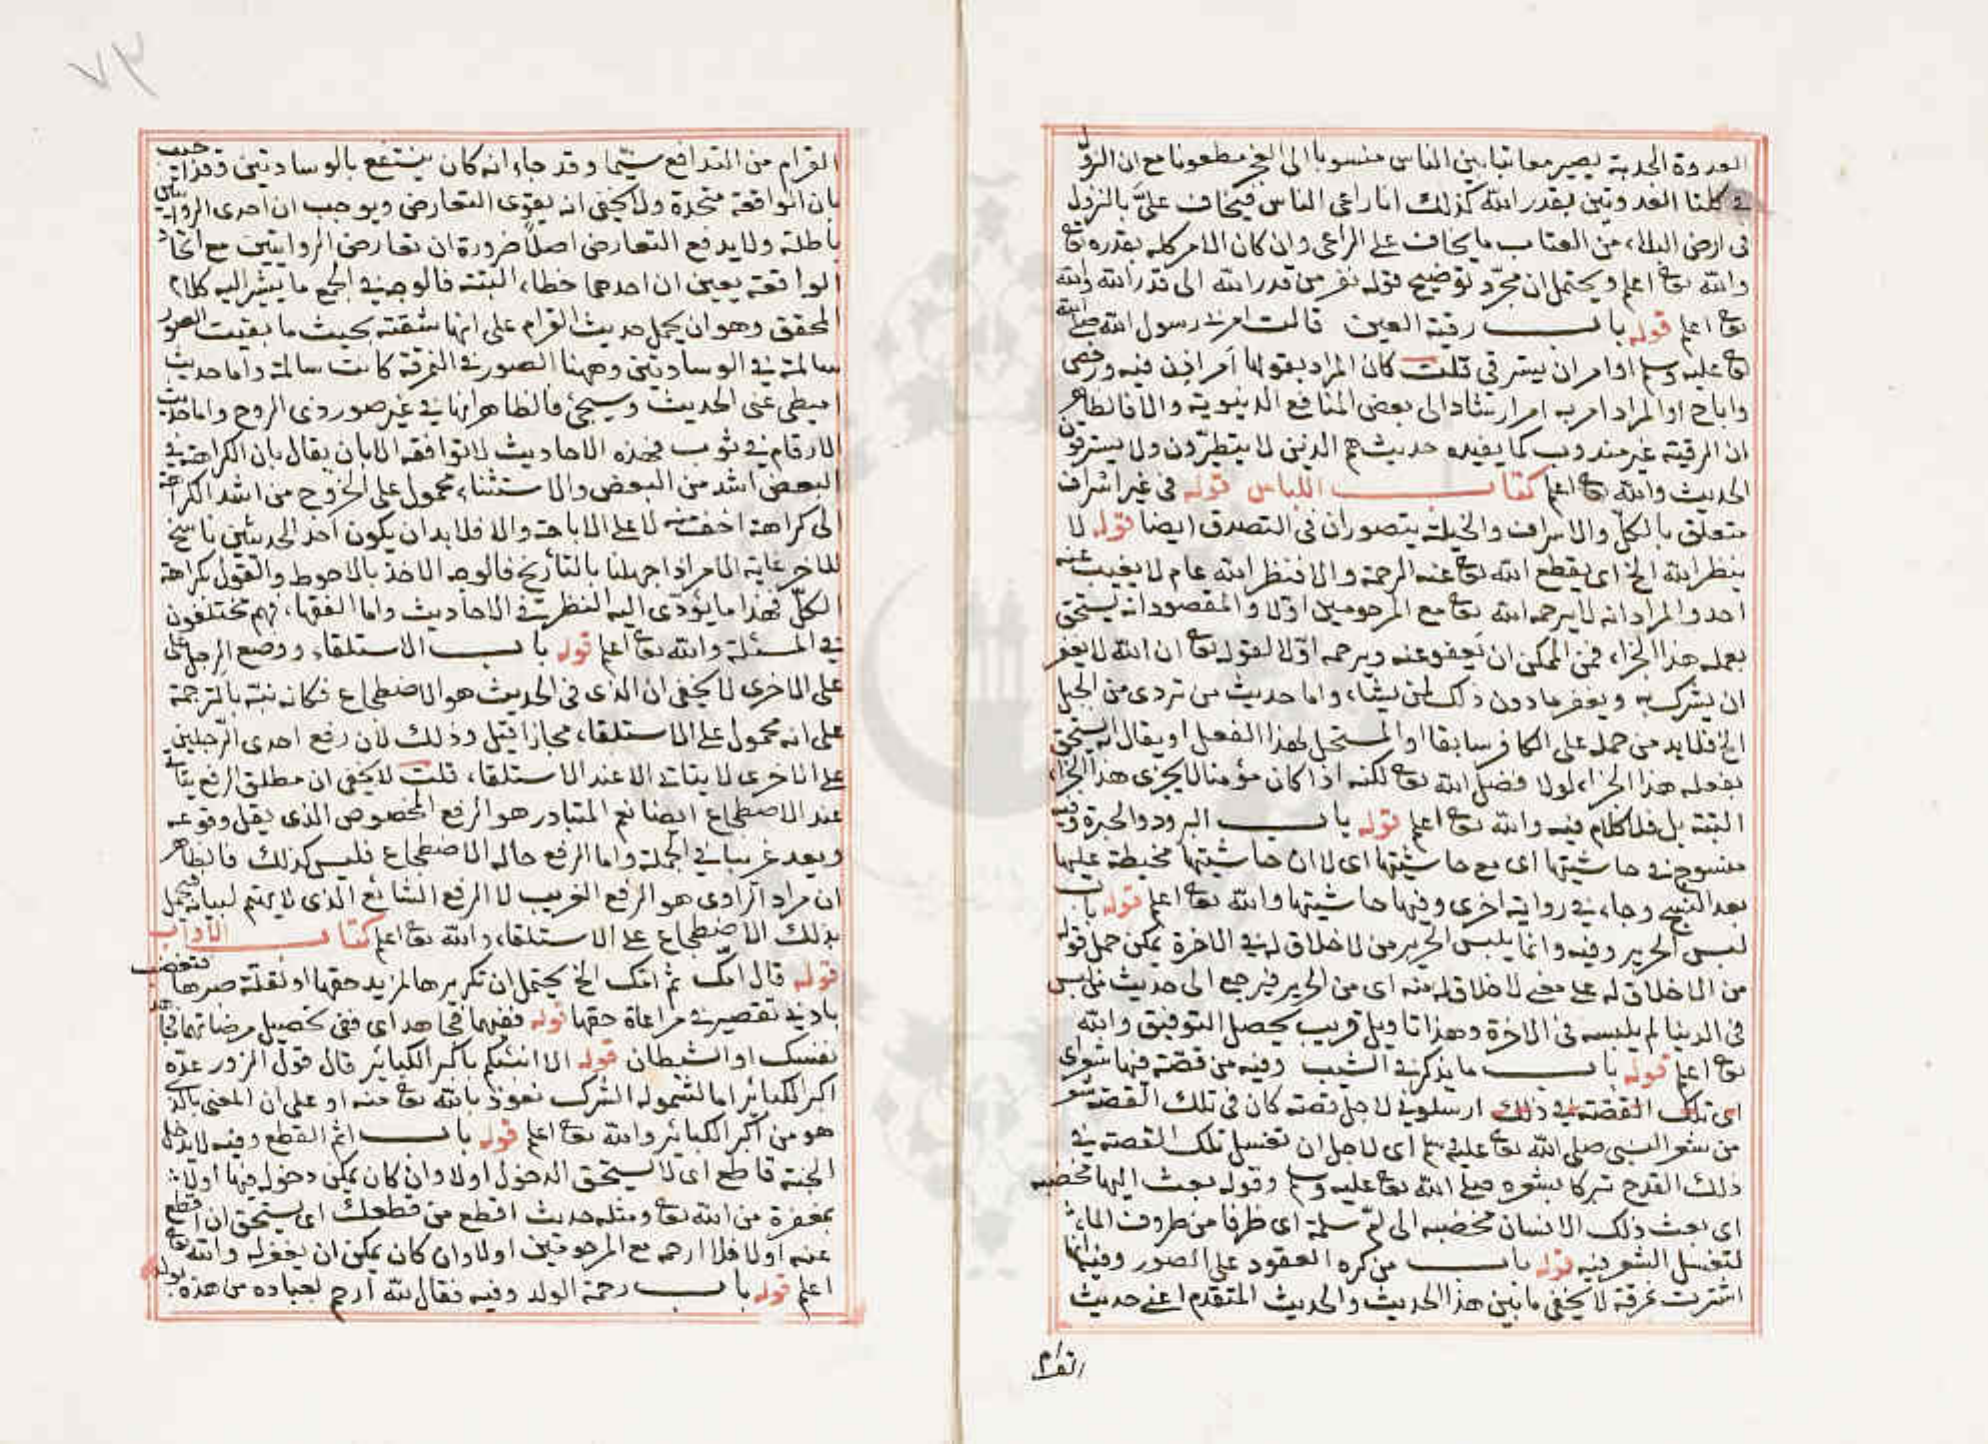 العدوة الجدبة يصير معاتبا بين الناس منسوبا الى العجز مطعونا مع ان النزول
في كلتا العدوتين بقدر الله كذلك انا راعي الناس فيخاف عليّ بالنزول
في ارض البلاء من العتاب ما يخاف على الراعي وان كان الامر كله بقدره تع
والله تع اعلم ويحتمل ان مجرّد توضيح قوله نفر من قدر الله الى قدر الله والله
تع اعلم قوله باب رقية العين قالت امرني رسول الله صلى الله
تع عليه وسلم او امر ان يسترقي قلت كان المراد بقولها أمر اذن فيه ورخص
واباح او المراد امر به امر ارشاد الى بعض المنافع الدنيوية والا فالظاهر
ان الرقية غير مندوب كما يفيده حديث هم الذين لا يتطيرون ولا يسترقون
الحديث والله تع اعلم كتاب اللباس قوله في غير اسراف
متعلق بالكل والاسراف والخيلة يتصوران في التصدق ايضا قوله لا
ينظر الله الخ اي يقطع الله تع عنه الرحمة والا فنظر الله عام لا يغيب عنه
احد والمراد انه لا يرحمه الله تع مع المرحومين اوّلا والمقصود انه يستحق
بعمله هذا الجزاء فمن الممكن ان يعفو عنه ويرحمه اوّلا لقوله تع ان الله لا يغفر
ان يشرك به ويغفر ما دون ذلك لمن يشاء واما حديث من تردى من الجبل
الخ فلا بد من حمله على الكافر سابقا او المستحل لهذا الفعل او يقال انه يستحق
بفعله هذا الجزاء لولا فضل الله تع لكنه اذا كان مؤمنا لا يجزى هذا الجزاء
البتة بل فلا كلام فيه والله تع اعلم قوله باب البرود والحبرة وفيه
منسوج في حاشيتها اي مع حاشيتها اي لا ان حاشيتها مخيطة عليها
بعد النسج وجاء في رواية اخرى وفيها حاشيتها والله تع اعلم قوله باب
لبس الحرير وفيه وانما يلبس الحرير من لا خلاق له في الاخرة يمكن حمل قوله
من لا خلاق له على معنى لا خلاق له منه اي من الحرير فيرجع الى حديث من لبس
في الدنيا لم يلبسه في الاخرة وهذا تاويل قريب يحصل التوفيق والله
تع اعلم قوله باب ما يذكر في الشيب وفيه من قصة فيها شعر اي
اي تلك القصة في ذلك ارسلوني لاجل قصة كان في تلك القصة شعر
من شعر النبي صلى الله تع عليه وسلم اي لاجل ان تغسل تلك القصة في
ذلك القدح تبركا بشعره صلى الله تع عليه وسلم وقوله بعث اليها مخضبه
اي بعث ذلك الانسان مخضبه الى امّ سلمة اي ظرفا من ظروف الماء
لتغسل الشعر فيه قوله باب من كره القعود على الصور وفيه انها
اشترت نمرقة لا يخفى ما بين هذا الحديث والحديث المتقدم اعني حديث
القرام
القرام من التدافع سيّما وقد جاء انه كان ينتفع بالوسادتين وقد
بان الواقعة متحدة ولا يخفى انه يقوى التعارض ويوجب ان احدى الروايتين
باطلة ولا يدفع التعارض اصلا ضرورة ان تعارض الروايتين مع اتحاد
الواقعة يعين ان احدهما خطاء البتة فالوجه في الجمع ما يشير اليه كلام
المحقق وهو ان يحمل حديث القرام على انها شقته بحيث ما بقيت الصور
سالمة في الوسادتين وههنا الصور في النمرقة كانت سالمة واما حديث
اميطي عني الحديث وسيجئ فالظاهر انها في غير صور ذي الروح واما حديث
الا رقام في ثوب فهذه الاحاديث لا توافقه الا بان يقال بان الكراهة في
البعض اشد من البعض والاستثناء محمول على الخروج من اشد الكراهة
الى كراهة اخف منه لا على الاباحة والا فلا بد ان يكون احد الحديثين ناسخ
للاخر غاية الامر اذا جهلنا بالتأريخ فالوجه الاخذ بالاحوط والقول بكراهة
الكلّ فهذا ما يؤدي اليه النظر في الاحاديث واما الفقهاء فهم مختلفون
في المسئلة والله تع اعلم قوله باب الاستلقاء ووضع الرجل على
على الاخرى لا يخفى ان الذي في الحديث هو الاضطجاع فكانه نبّه بالترجمة
على انه محمول على الاستلقاء مجازا قيل وذلك لان رفع احدى الرجلين
على الاخرى لا يتاتى الا عند الاستلقاء قلت لا يخفى ان مطلق الرفع يتاتى
عند الاضطجاع ايضا نعم المتبادر هو الرفع المخصوص الذي يقل وقوعه
ويعد غريبا في الجملة واما الرفع حالة الاضطجاع فليس كذلك فالظاهر
ان مراد الراوي هو الرفع الغريب لا الرفع الشائع الذي لا يهتم لبيانه فيحمل
بذلك الاضطجاع على الاستلقاء والله تع اعلم كتاب الاداب
قوله قال امّك ثم امّك الخ يحتمل ان تكريرها لمزيد حقها او لقلة صبرها فتغضب
بادنى تقصير في مراعاة حقها قوله ففيهما فجاهد اي ففي تحصيل مرضاتهما فجاهد
نفسك او الشيطان قوله الا انبئكم باكبر الكبائر قال قول الزور عدّه
اكبر الكبائر اما لشموله الشرك نعوذ بالله تع منه او على ان المعنى بالذي
هو من اكبر الكبائر والله تع اعلم قوله باب اثم القطع وفيه لا يدخل
الجنة قاطع اي لا يستحق الدخول اولا وان كان يمكن دخوله فيها اولا
بمغفرة من الله تع ومثله حديث اقطع من قطعك اي يستحق ان اقطع
عنه اولا فلا ارحمه مع المرحومين اولا وان كان يمكن ان يغفر له والله تع
اعلم قوله باب رحمة الولد وفيه فقال لله ارحم لعباده من هذه